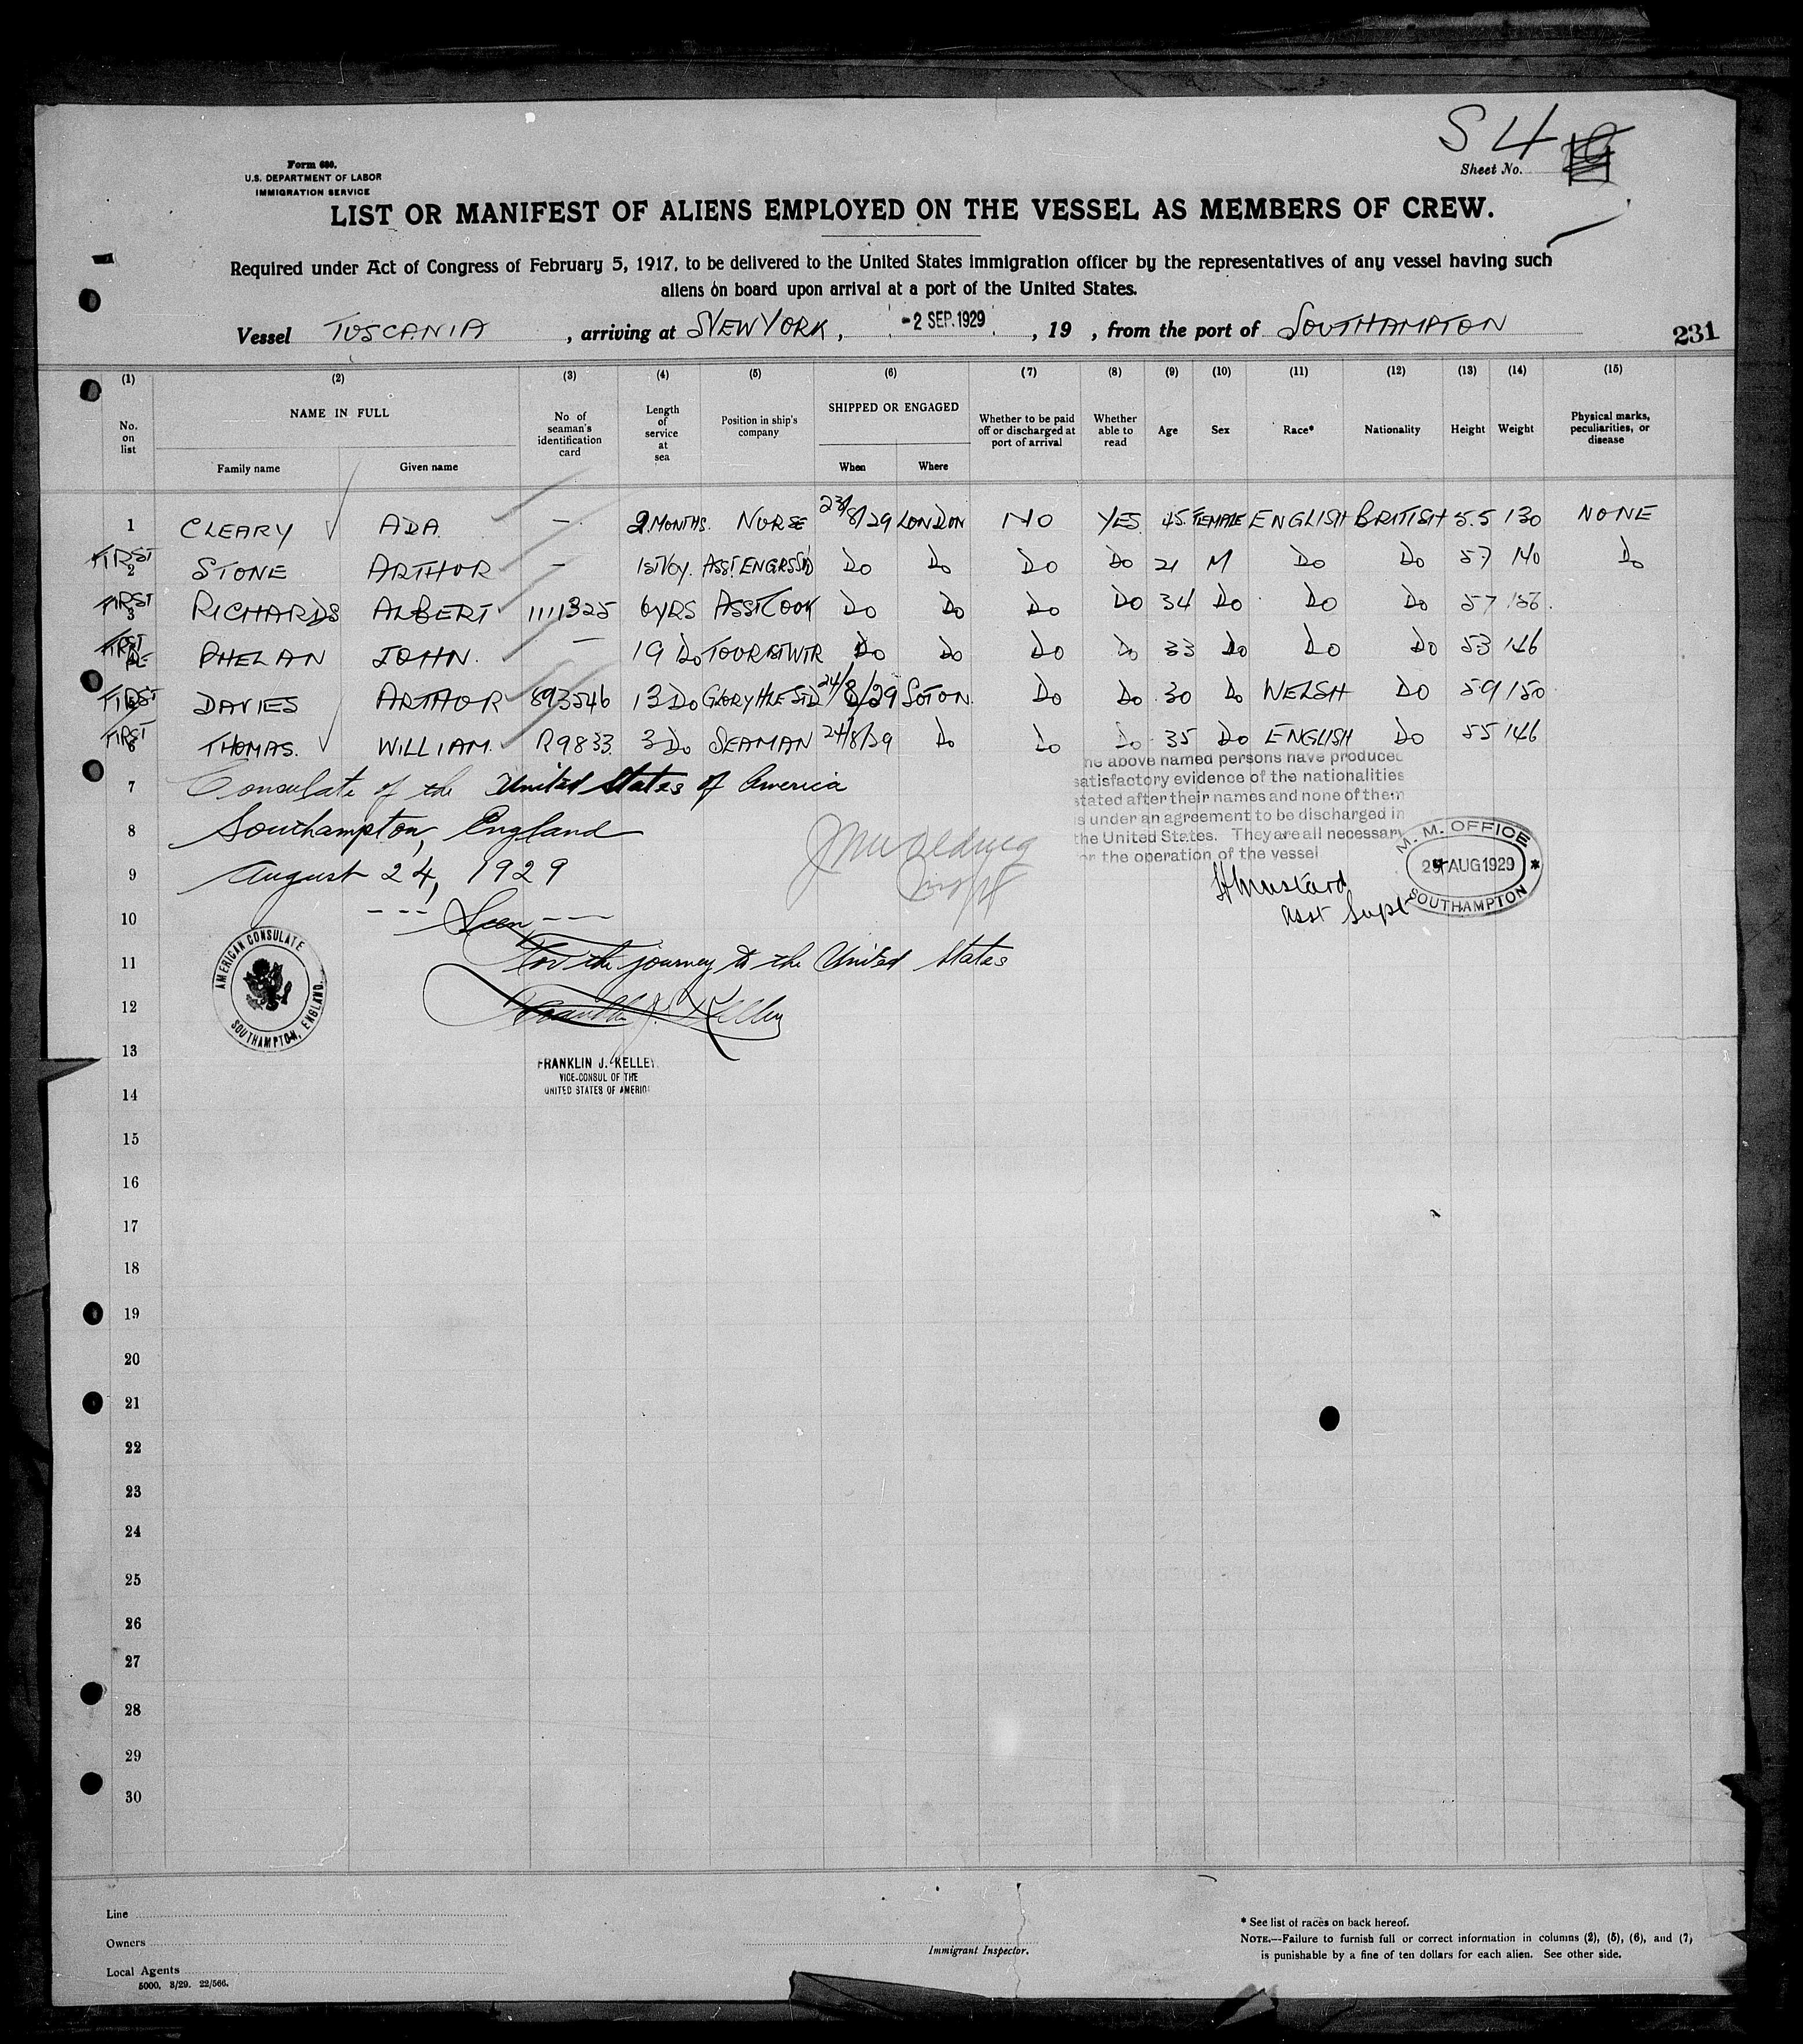 S 4
Form 680.
U.S. DEPARTMENT OF LABOR
IMMIGRATION SERVICE
Sheet No.
LIST OR MANIFEST OF ALIENS EMPLOYED ON THE VESSEL AS MEMBERS OF CREW.
Required under Act of Congress of February 5, 1917, to be delivered to the United States immigration officer by the representatives of any vessel having such
aliens on board upon arrival at a port of the United States.
Vessel TUSCANIA, arriving at NEW YORK, -2 SEP. 1929, 19 , from the port of SOUTHAMPTON
231
(1) (2) (3) (4) (5) (6) (7) (8) (9) (10) (11) (12) (13) (14) (15)
No. on list NAME IN FULL Family name Given name No. of seaman's identification card Length of service at sea Position in ship's company SHIPPED OR ENGAGED When Where Whether to be paid off or discharged at port of arrival Whether able to read Age Sex Race* Nationality Height Weight Physical marks, peculiarities, or disease
1 CLEARY ADA. — 2 MONTHS. NURSE 23/8/29 LONDON NO YES 45 FEMALE ENGLISH BRITISH 5.5 130 NONE
FIRST 2 STONE ARTHUR — 1ST VOY. ASST ENGRS STD DO DO DO DO 21 M DO DO 57 140 DO
FIRST 3 RICHARDS ALBERT 1111325 6 YRS ASST COOK DO DO DO DO 34 DO DO DO 57 156
FIRST PHELAN JOHN. — 19 DO TOURIST WTR DO DO DO DO 33 DO DO DO 53 146
FIRST DAVIES ARTHUR 893546 13 DO GLORY HLE STD 24/8/29 SOTON DO DO 30 DO WELSH DO 59 150
FIRST 6 THOMAS. WILLIAM. R9833 3 DO SEAMAN 24/8/29 DO DO DO 35 DO ENGLISH DO 55 146
7 Consulate of the United States of America
8 Southampton, England
9 August 24, 1929
10 --- Seen ---
11 For the journey to the United States
12 Franklin J. Kelley
he above named persons have produced
satisfactory evidence of the nationalities
stated after their names and none of them
is under an agreement to be discharged in
the United States. They are all necessary
or the operation of the vessel
H Mustard
Asst Supt
M. M. OFFICE
24 AUG 1929
SOUTHAMPTON
AMERICAN CONSULATE
SOUTHAMPTON, ENGLAND.
13
FRANKLIN J. KELLEY
VICE-CONSUL OF THE
UNITED STATES OF AMERICA
14
15
16
17
18
19
20
21
22
23
24
25
26
27
28
29
30
Line
Owners
Local Agents
5000. 3/29. 22/566.
Immigrant Inspector.
* See list of races on back hereof.
NOTE.—Failure to furnish full or correct information in columns (2), (5), (6), and (7)
is punishable by a fine of ten dollars for each alien. See other side.